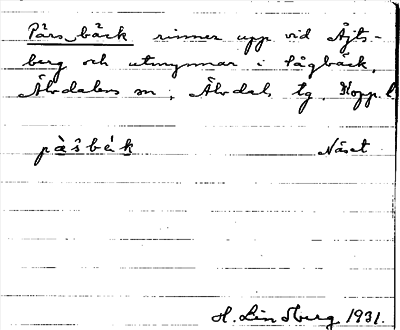 Pärs bäck rinner upp vid Åjts-
berg och utmynnar i Sågbäck,
Älvdalens sn, Älvdal tg, Kopp. l.
Näset
H. Lindberg 1931.